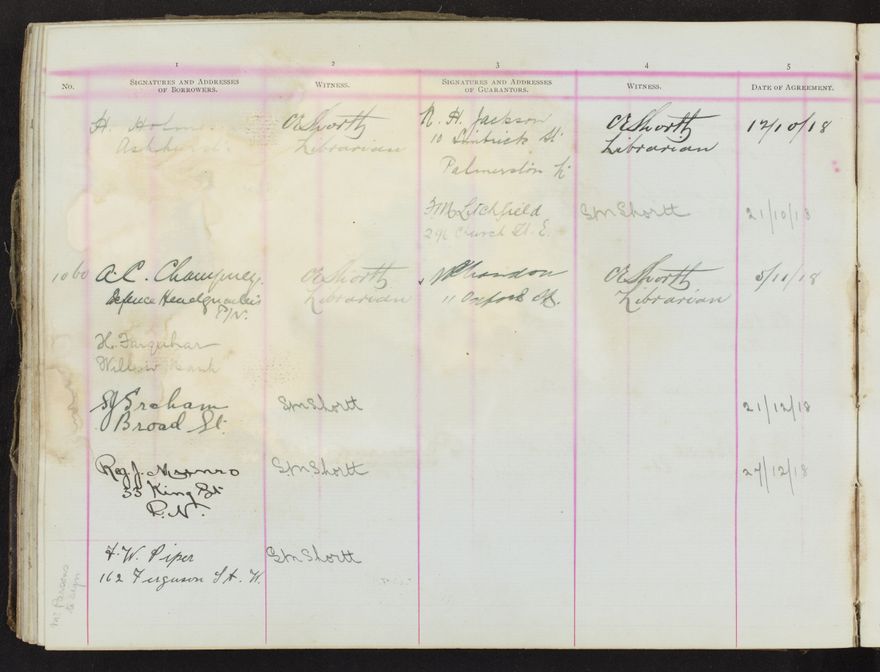 1 2 3 4 5
No. SIGNATURES AND ADDRESSES OF BORROWERS. WITNESS. SIGNATURES AND ADDRESSES OF GUARANTORS. WITNESS. DATE OF AGREEMENT.
H. Holmes CAShortt N. H. Jackson CAShortt 12/10/18
Ashhurst Librarian 10 St. Librarian
Palmerston N.
F.M. Litchfield SMShortt 21/10/18
296 Church St. E.
1060 A. C. Champney. CAShortt CAShortt 5/11/18
Defence Headquarters Librarian 11 Oxford St. Librarian
P/N.
H. Farquhar
Willow Bank
SJ Graham SMShortt 21/12/18
Broad St.
Reg. J. Munro SMShortt 27/12/18
33 King St
P. N.
F. W. Piper SMShortt
162 Ferguson St. W.
Mr Parsons
to sign